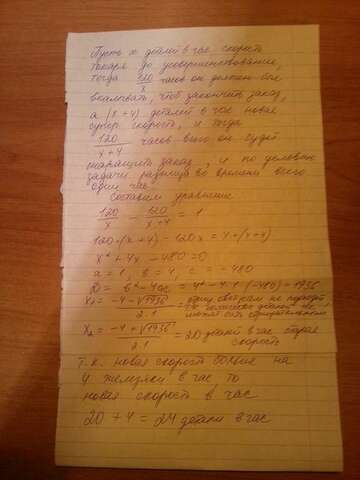 Пусть x деталей в час скорость
токаря до усовершенствования,
тогда 120/x часов он должен был
вкалывать, чтоб закончить заказ,
а (x+4) деталей в час новая
супер скорость, и тогда
120/(x+4) часов всего он будет
заказ, и по условию
задачи разница во времени всего
один час.
Составим уравнение
120/x - 120/(x+4) = 1
120·(x+4) - 120x = x·(x+4)
x² + 4x - 480 = 0
a = 1, b = 4, c = -480
D = b² - 4ac = 4² - 4·1·(-480) = 1936
x₁ = (-4 - √1936)/(2·1) = не подходит,
т.к. количество деталей не
может быть отрицательным
x₂ = (-4 + √1936)/(2·1) = 20 деталей в час старая
скорость
Т.к. новая скорость больше на
4 железяки в час, то
новая скорость в час
20 + 4 = 24 детали в час